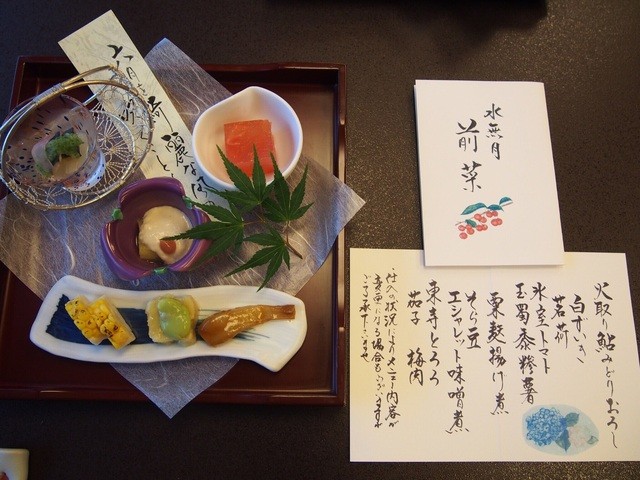 水無月
前菜
火取り鮎みどりおろし
白ずいき
茗荷
氷室トマト
玉蜀黍糝薯
粟麩揚げ煮
そら豆
エシャレット味噌煮
東寺とろろ
茄子 梅肉
・仕入の状況によりメニュー内容が
変更になる場合もございますが
ご了承下さいませ
六月